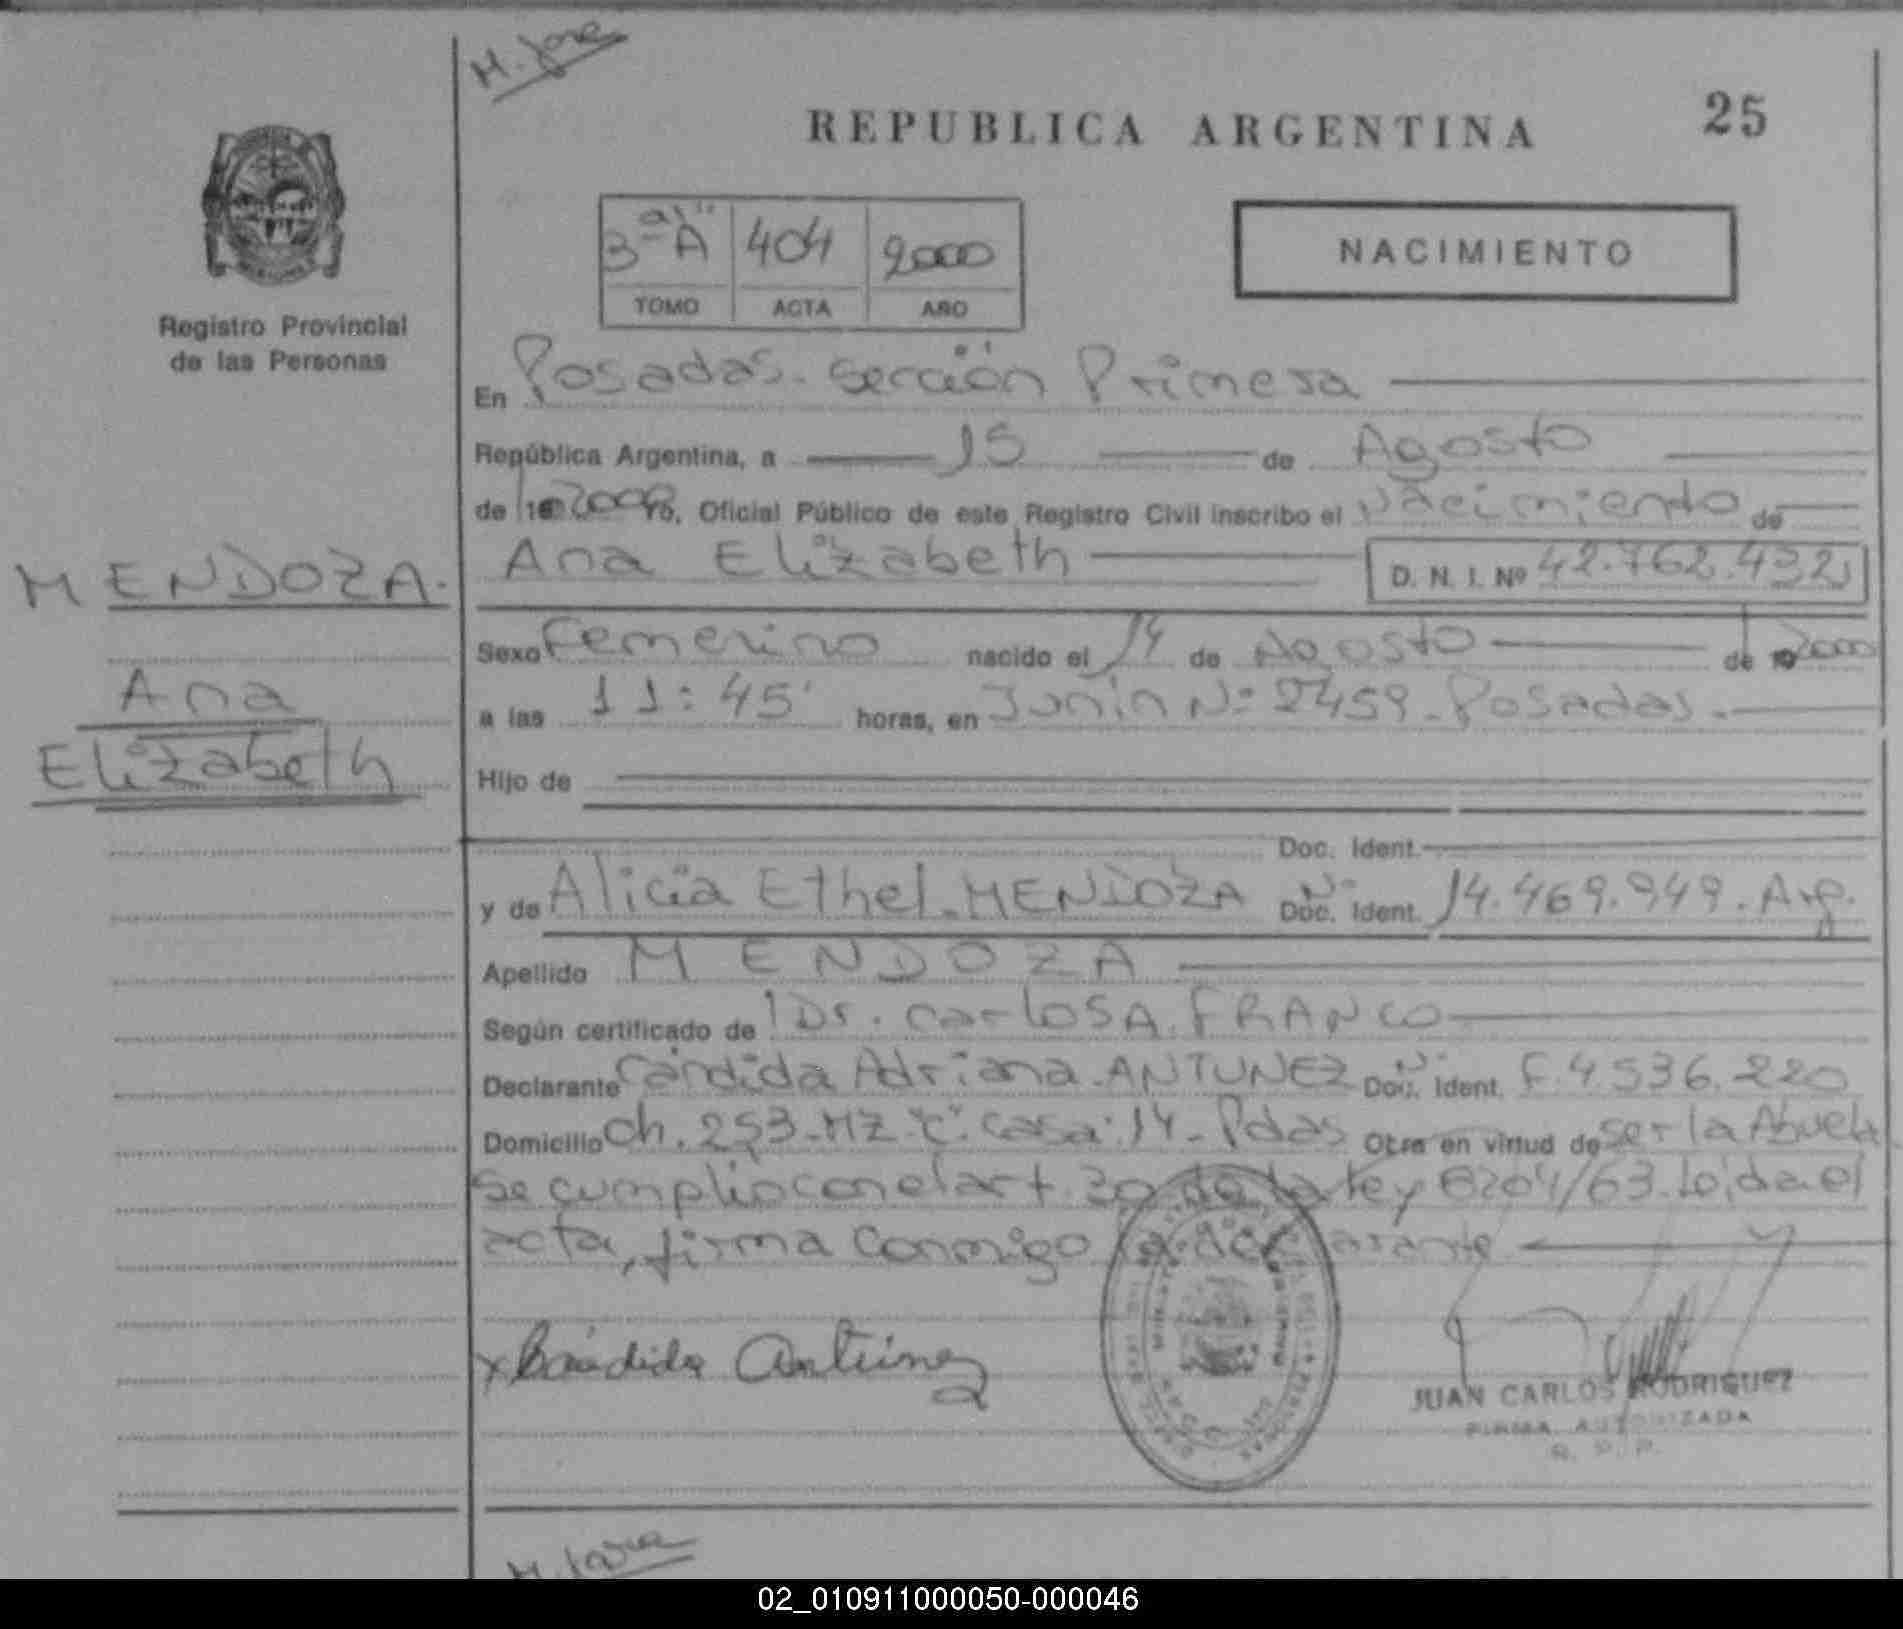 M. Jose
REPUBLICA ARGENTINA
25
3ª "A" 404 2000
TOMO ACTA AÑO
NACIMIENTO
Registro Provincial
de las Personas
En Posadas. sección Primera
República Argentina, a 15 de Agosto
de 2000 Yo, Oficial Público de este Registro Civil inscribo el Nacimiento de
Ana Elizabeth D. N. I. Nº 42.762.432
MENDOZA.
Ana
Elizabeth
Sexo Femenino nacido el 14 de Agosto de 2000
a las 11:45' horas, en Junín Nº 2459. Posadas.
Hijo de
Doc. Ident.
y de Alicia Ethel. MENDOZA Nº Doc. Ident. 14.469.949. Arg.
Apellido MENDOZA
Según certificado de Dr. Carlos A. FRANCO
Declarante Cándida Adriana. ANTUNEZ Nº Doc. Ident. F. 4.536.220
Domicilio Ch. 253. MZ "C" Casa: 14. Pdas Otra en virtud de ser la Abuela
se cumplió con el art. 30 de la Ley 8204/63. Leída el
acta, firma conmigo la declarante
x Cándida Antúnez
JUAN CARLOS RODRIGUEZ
FIRMA AUTORIZADA
R. P. P.
02_010911000050-000046